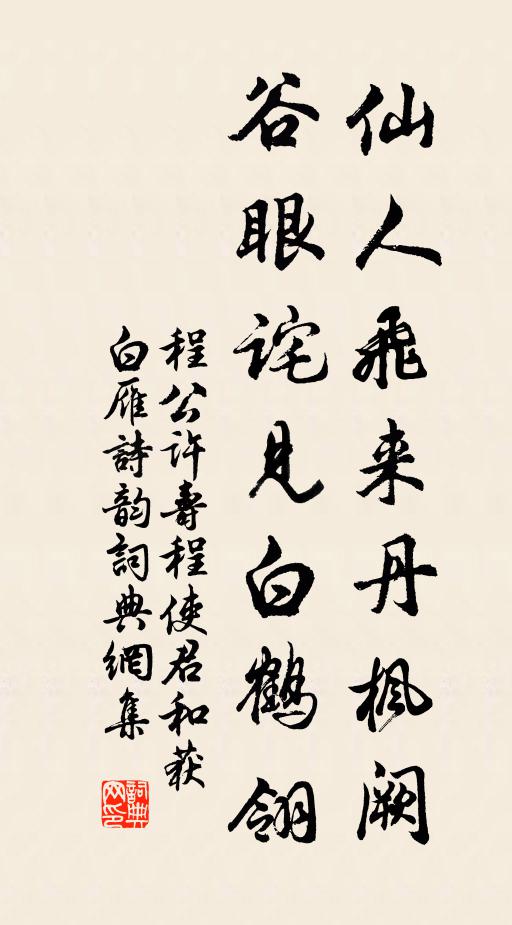 仙人飛来丹楓闕
谷眼詫見白鶴翎
程公許壽程使君和获
白雁詩韵詞典網集
詞典
网印